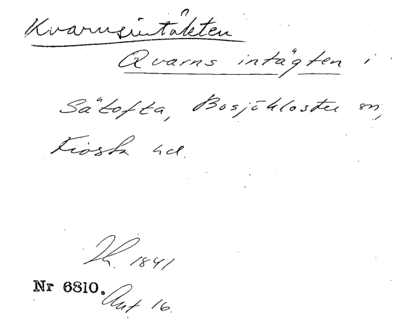 Kvarnsintäkten
Qvarns intägten i
Sätofta, Bosjökloster sn,
Frosta hd.
Lh. 1841
Nr 6810.
Ant 16.